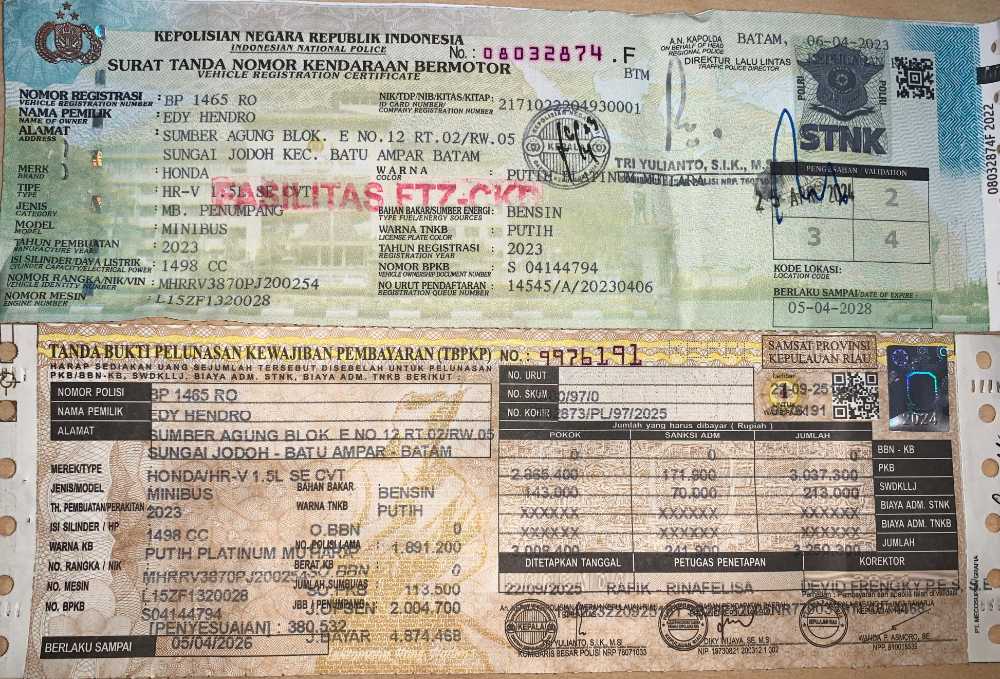 KEPOLISIAN NEGARA REPUBLIK INDONESIA
INDONESIAN NATIONAL POLICE
No.: 08032874 .F
SURAT TANDA NOMOR KENDARAAN BERMOTOR
VEHICLE REGISTRATION CERTIFICATE
BTM
A.N. KAPOLDA
ON BEHALF OF HEAD REGIONAL POLICE
BATAM, 06-04-2023
DIREKTUR LALU LINTAS
TRAFFIC POLICE DIRECTOR
NOMOR REGISTRASI : BP 1465 RO
VEHICLE REGISTRATION NUMBER
NIK/TDP/NIB/KITAS/KITAP: 2171022204930001
ID CARD NUMBER/
COMPANY REGISTRATION NUMBER
NAMA PEMILIK : EDY HENDRO
NAME OF OWNER
ALAMAT : SUMBER AGUNG BLOK. E NO.12 RT.02/RW.05
ADDRESS
SUNGAI JODOH KEC. BATU AMPAR BATAM
TRI YULIANTO, S.I.K., M.S
MERK : HONDA
BRAND
WARNA : PUTIH PLATINUM MUTIARA
COLOR
TIPE : HR-V 1.5L SE CVT
TYPE
FASILITAS FTZ-CKD
JENIS : MB. PENUMPANG
CATEGORY
BAHAN BAKAR/SUMBER ENERGI : BENSIN
TYPE FUEL/ENERGY SOURCES
MODEL : MINIBUS
MODEL
WARNA TNKB : PUTIH
LICENSE PLATE COLOR
TAHUN PEMBUATAN : 2023
MANUFACTURE YEAR
TAHUN REGISTRASI : 2023
REGISTRATION YEAR
ISI SILINDER/DAYA LISTRIK : 1498 CC
CYLINDER CAPACITY/ELECTRICAL POWER
NOMOR BPKB : S 04144794
VEHICLE OWNERSHIP DOCUMENT NUMBER
NOMOR RANGKA/NIK/VIN : MHRRV3870PJ200254
VEHICLE IDENTITY NUMBER
NO URUT PENDAFTARAN : 14545/A/20230406
REGISTRATION QUEUE NUMBER
NOMOR MESIN : L15ZF1320028
ENGINE NUMBER
POLRI
POLRI
STNK
PENGESAHAN / VALIDATION
2
3
4
KODE LOKASI:
LOCATION CODE
BERLAKU SAMPAI/DATE OF EXPIRE :
05-04-2028
08032874F 2022
TANDA BUKTI PELUNASAN KEWAJIBAN PEMBAYARAN (TBPKP) NO.: 9976191
HARAP SEDIAKAN UANG SEJUMLAH TERSEBUT DISEBELAH UNTUK PELUNASAN
PKB/BBN-KB, SWDKLLJ, BIAYA ADM. STNK, BIAYA ADM. TNKB BERIKUT :
SAMSAT PROVINSI
KEPULAUAN RIAU
NOMOR POLISI BP 1465 RO
NAMA PEMILIK EDY HENDRO
ALAMAT SUMBER AGUNG BLOK. E NO.12 RT.02/RW.05
SUNGAI JODOH - BATU AMPAR - BATAM
MEREK/TYPE : HONDA/HR-V 1.5L SE CVT
JENIS/MODEL : MINIBUS
BAHAN BAKAR : BENSIN
TH. PEMBUATAN/PERAKITAN 2023
WARNA TNKB : PUTIH
ISI SILINDER / HP : 1498 CC
O.BBN 0
WARNA KB : PUTIH PLATINUM MUTIARA
NO. POLISI LAMA : 1.891.200
NO. RANGKA / NIK : MHRRV3870PJ200254
BERAT KB
BBN 0
NO. MESIN : L15ZF1320028
JUMLAH SUMBU/AS 113.500
NO. BPKB : S04144794
JBB PENUMPANG
2.004.700
[PENYESUAIAN] : 380.532
J.BAYAR 4.874.468
BERLAKU SAMPAI 05/04/2026
NO. URUT
NO. SKUM /97/0
NO. KOHIR 2873/PL/97/2025
Jumlah yang harus dibayar ( Rupiah )
POKOK SANKSI ADM JUMLAH
0 0 0 BBN - KB
2.865.400 171.900 3.037.300 PKB
143.000 70.000 213.000 SWDKLLJ
XXXXXX XXXXXX XXXXXX BIAYA ADM. STNK
XXXXXX XXXXXX XXXXXX BIAYA ADM. TNKB
3.008.400 241.900 3.250.300 JUMLAH
DITETAPKAN TANGGAL PETUGAS PENETAPAN KOREKTOR
22/09/2025 RAFIK RINAFELISA DEVID FRENGKY P.E.S
TRI YULIANTO, S.I.K, M.SI
KOMBARIS BESAR POLISI NRP 76071033
DIKY WIJAYA, SE, M.SI
NIP. 19730821 200312 1 002
2024